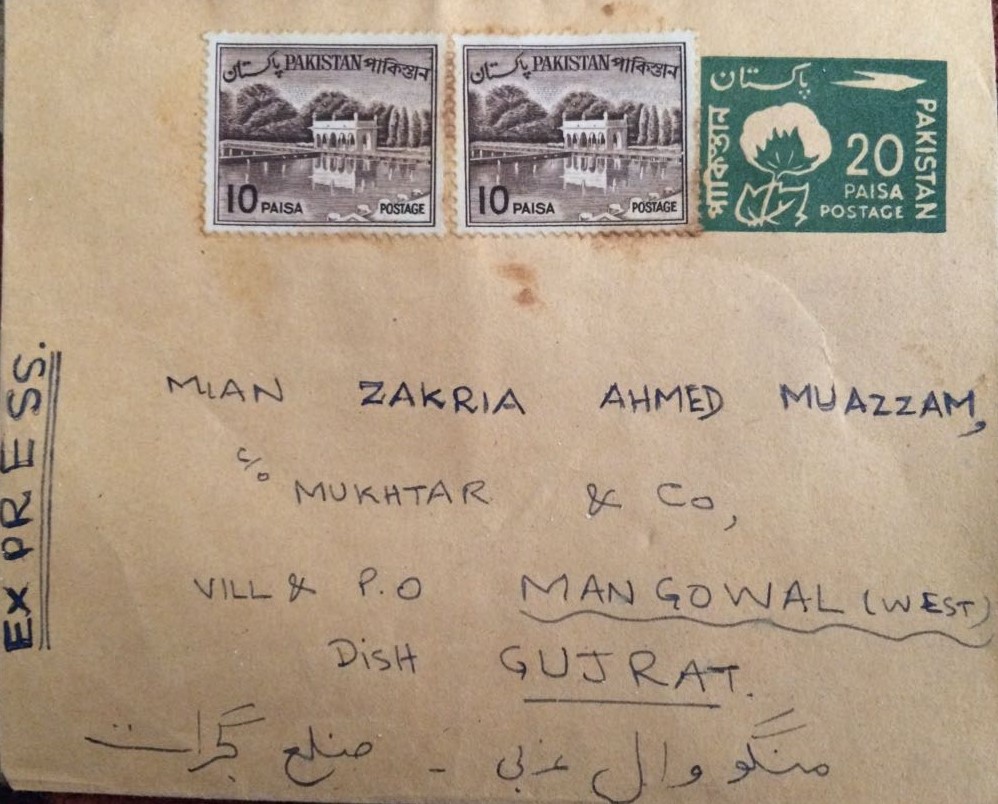 پاکستان PAKISTAN পাকিস্তান
10 PAISA POSTAGE
پاکستان PAKISTAN পাকিস্তান
10 PAISA POSTAGE
پاکستان
পাকিস্তান
PAKISTAN
20
PAISA
POSTAGE
EXPRESS.
MIAN ZAKRIA AHMED MUAZZAM,
c/o MUKHTAR & Co,
VILL & P.O MANGOWAL (WEST)
DISH GUJRAT.
منگووال غربی - ضلع گجرات